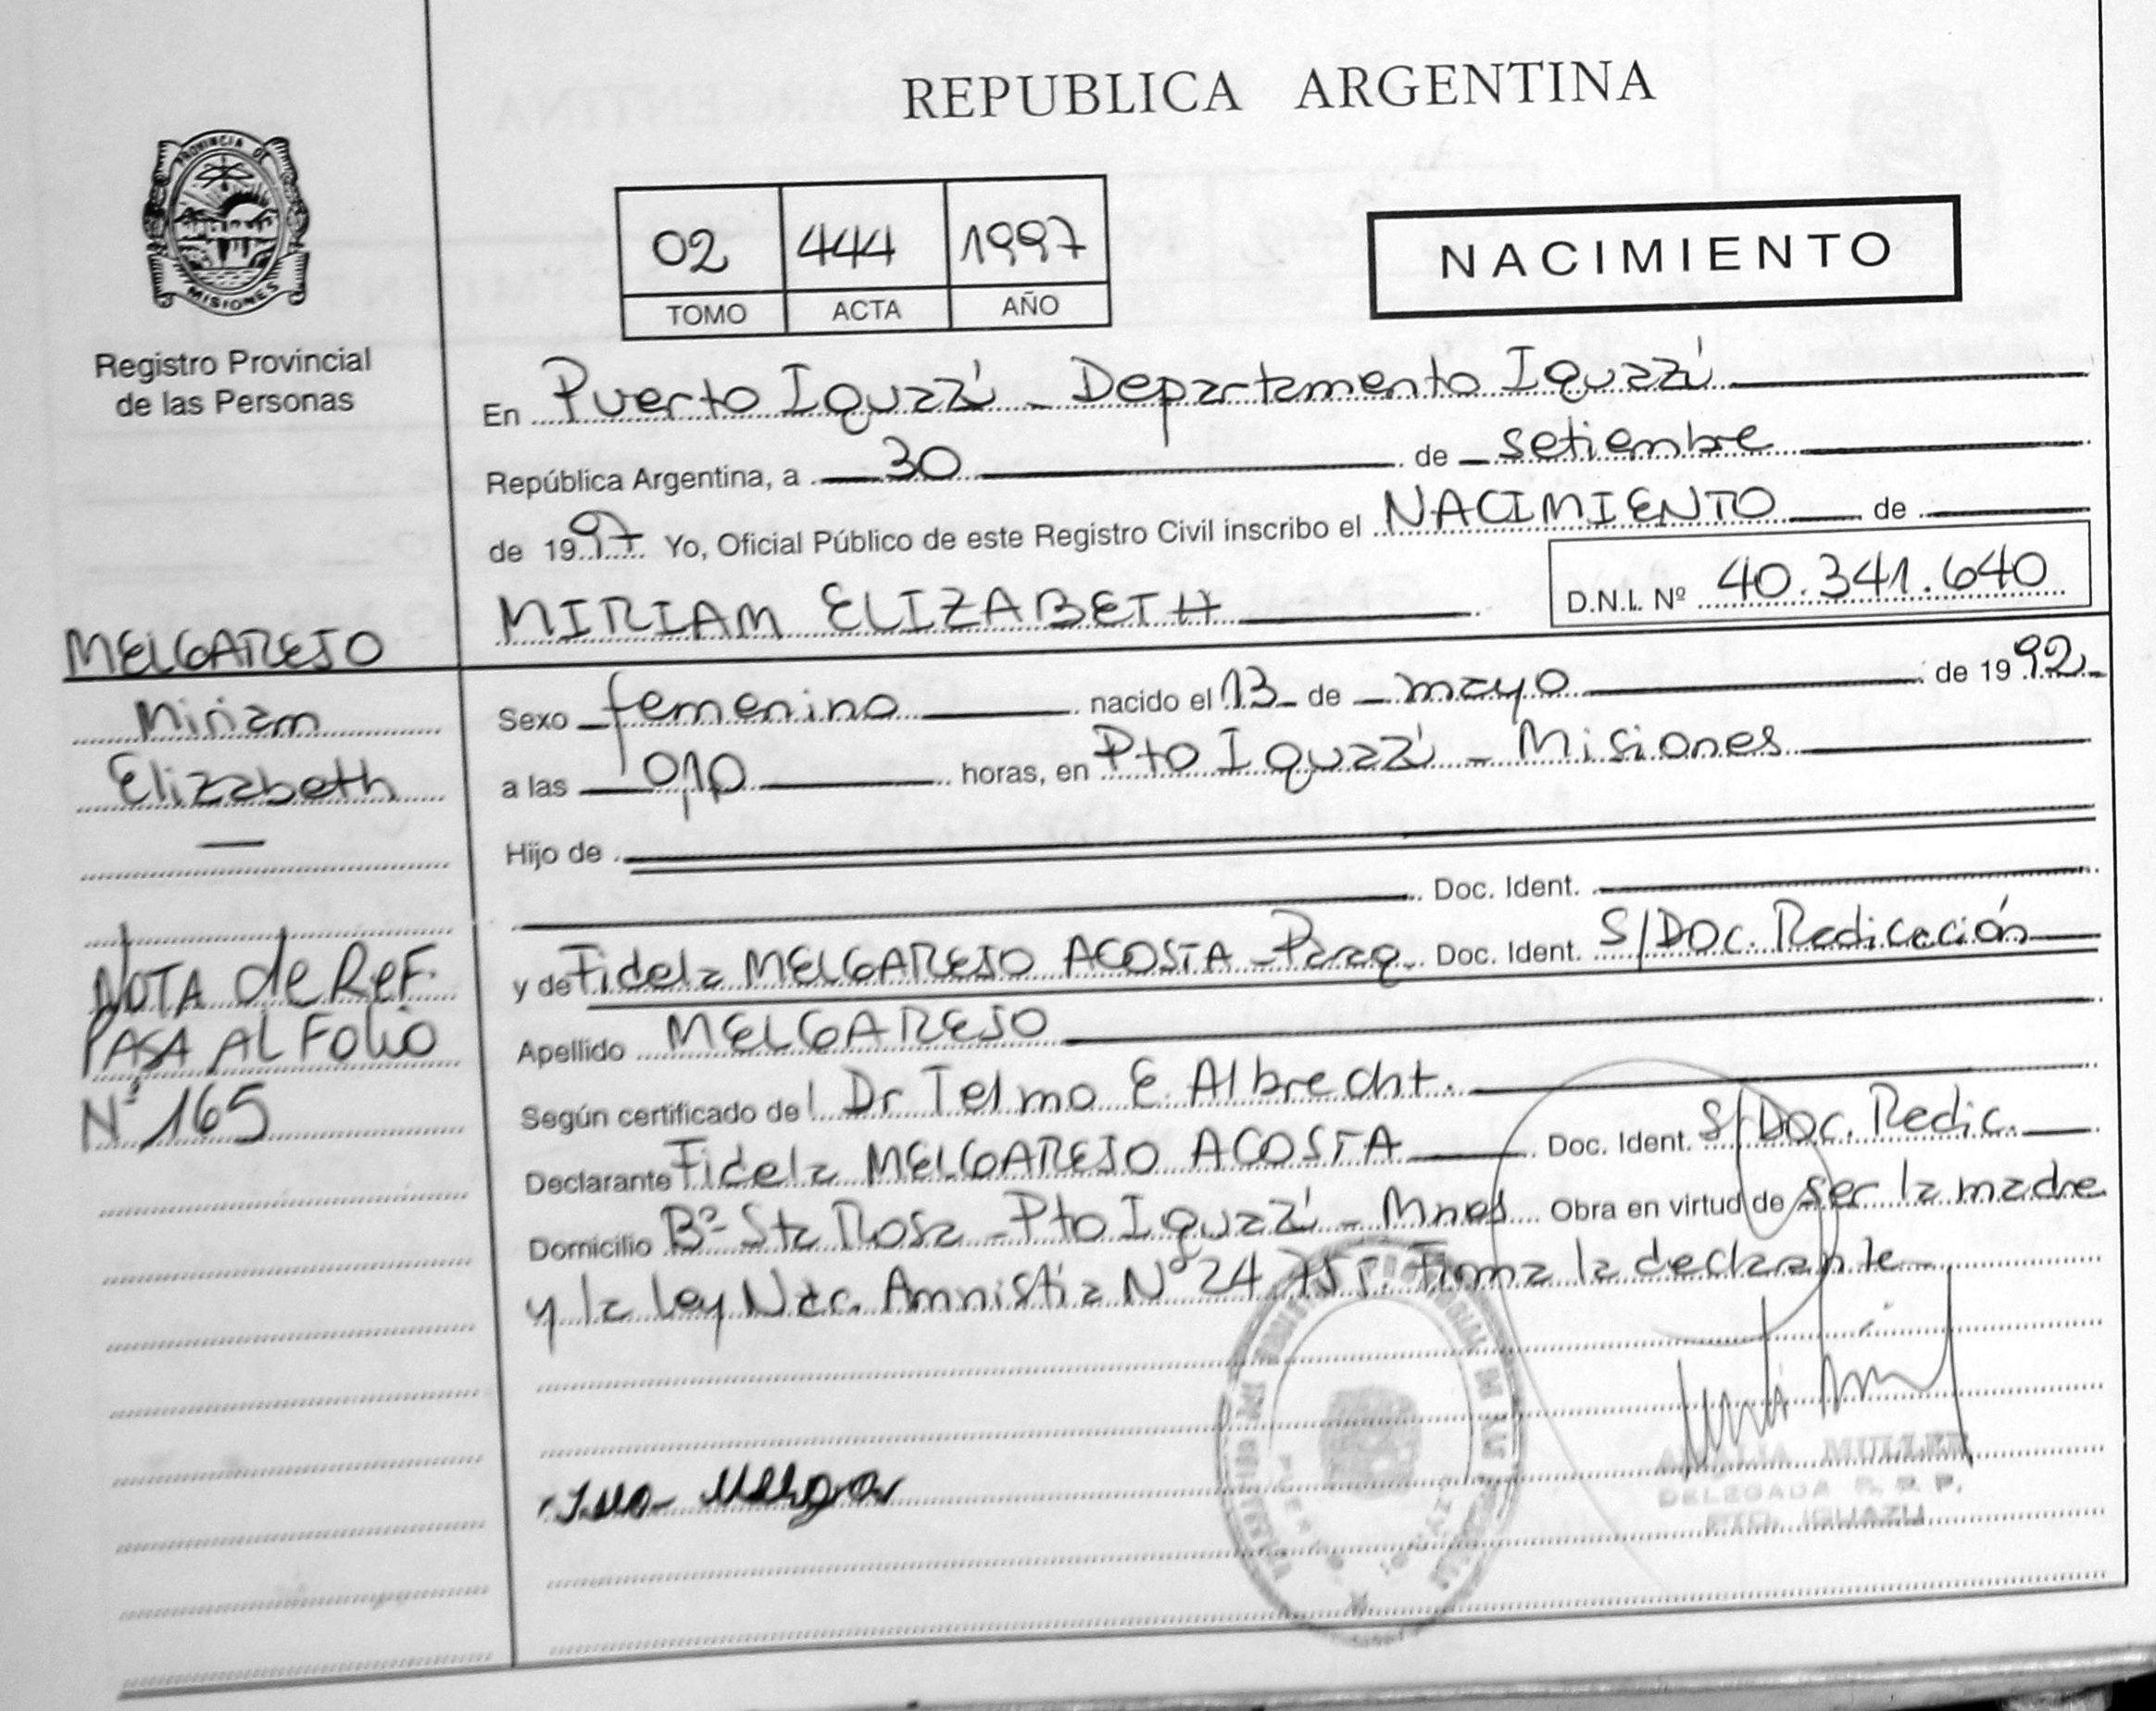 REPUBLICA ARGENTINA
PROVINCIA DE
MISIONES
Registro Provincial
de las Personas
02 444 1997
TOMO ACTA AÑO
NACIMIENTO
En Puerto Iguazú - Departamento Iguazú
República Argentina, a 30 de setiembre
de 1997 Yo, Oficial Público de este Registro Civil inscribo el NACIMIENTO de
MIRIAM ELIZABETH D.N.I. Nº 40.341.640
MELGAREJO
Miriam
Elizabeth
NOTA de REF.
PASA AL FOLIO
Nº 165
Sexo femenino nacido el 13 de mayo de 1992
a las 0,10 horas, en Pto Iguazú - Misiones
Hijo de
Doc. Ident.
y de Fidela MELGAREJO ACOSTA - Parag Doc. Ident. S/DOC. Radicación
Apellido MELGAREJO
Según certificado del Dr Telmo E. Albrecht.
Declarante Fidela MELGAREJO ACOSTA Doc. Ident. S/Doc. Radic.
Domicilio Bº Sta Rosa - Pto Iguazú - Mnes Obra en virtud de ser la madre
y la ley Nac. Amnistía Nº 24.755. Firma la declarante
MULLER
DELEGADA R. P. P.
PTO. IGUAZU